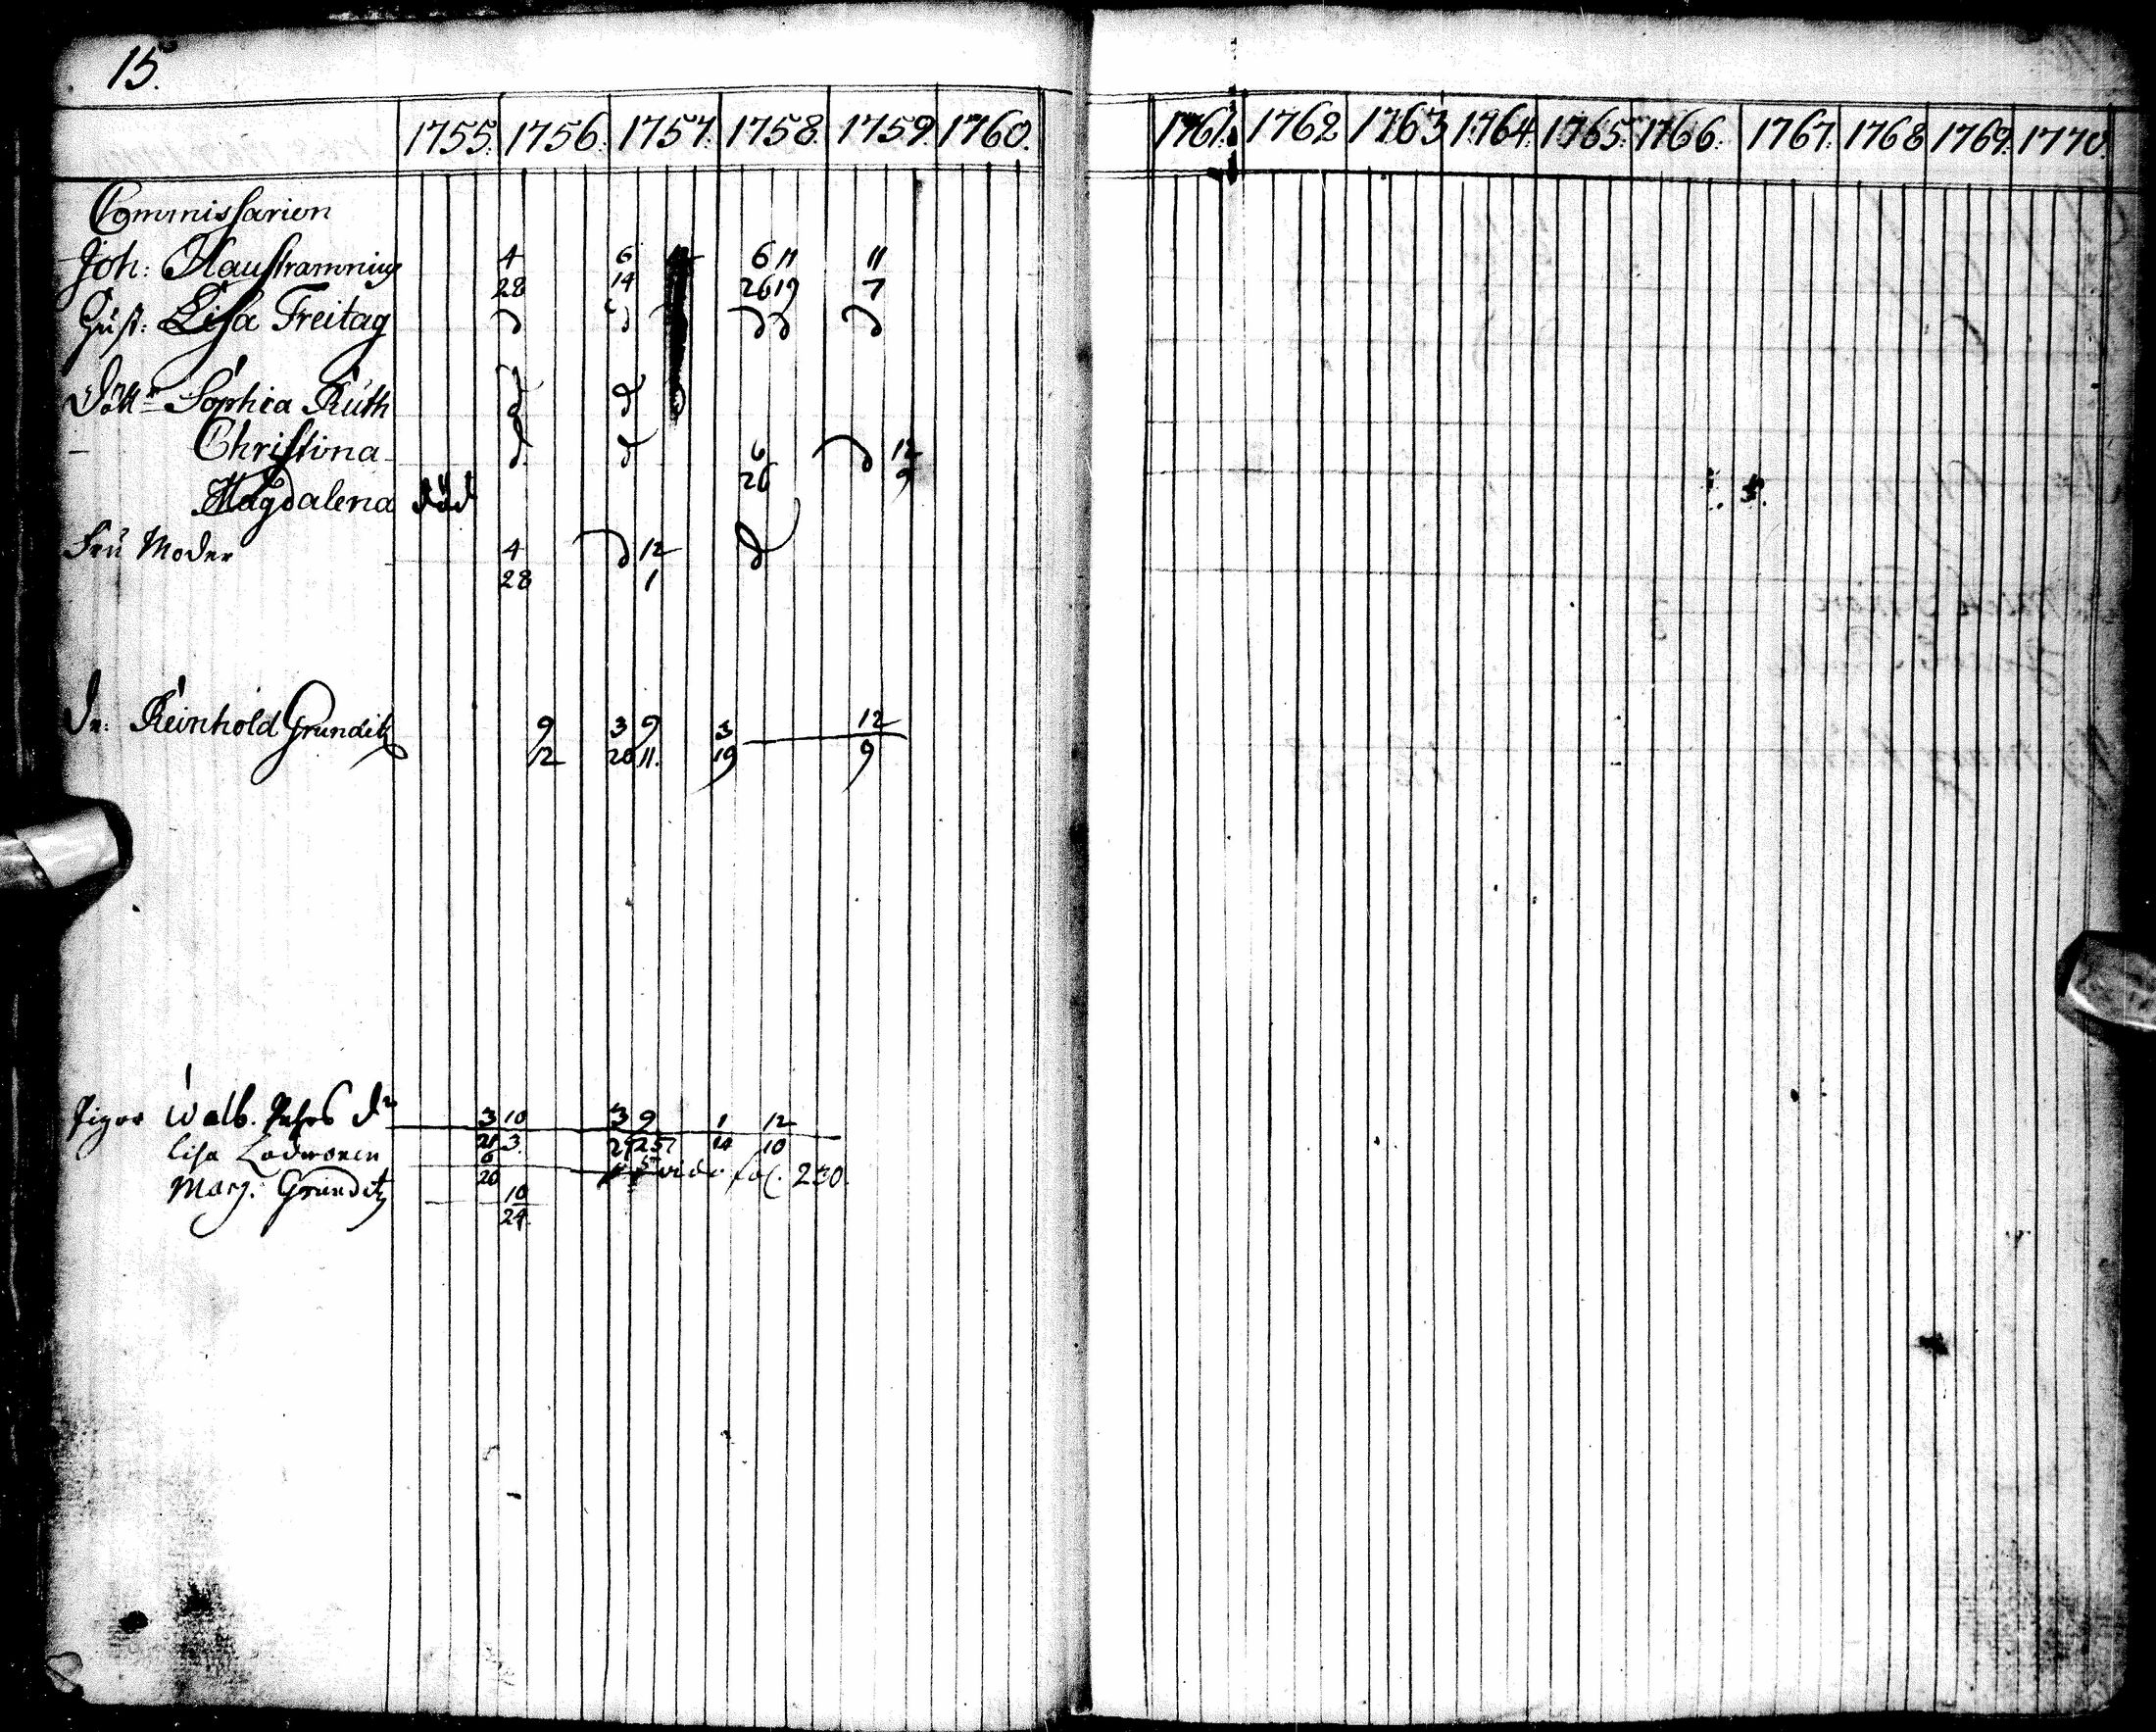 15.
1755. 1756. 1757. 1758. 1759. 1760. 1761. 1762 1763 1764. 1765. 1766. 1767. 1768 1769. 1770.
Commissarien
Joh:
4 6 6 11 11
28 14 26 19 7
Hust: Lisa Freitag
Dött: Sophia Ruth
Christina 6 12
26 9
Magdalena död
Fru Moder 4 12
28 1
Dr: Reinhold Grunditz
9 3 9 3 12
12 20 11. 19 9
Pigor Walb. 3 10 3 9 1 12
Lisa 21 3. 10
6 vide fol. 230.
Marg. Grunditz 20 10
24.